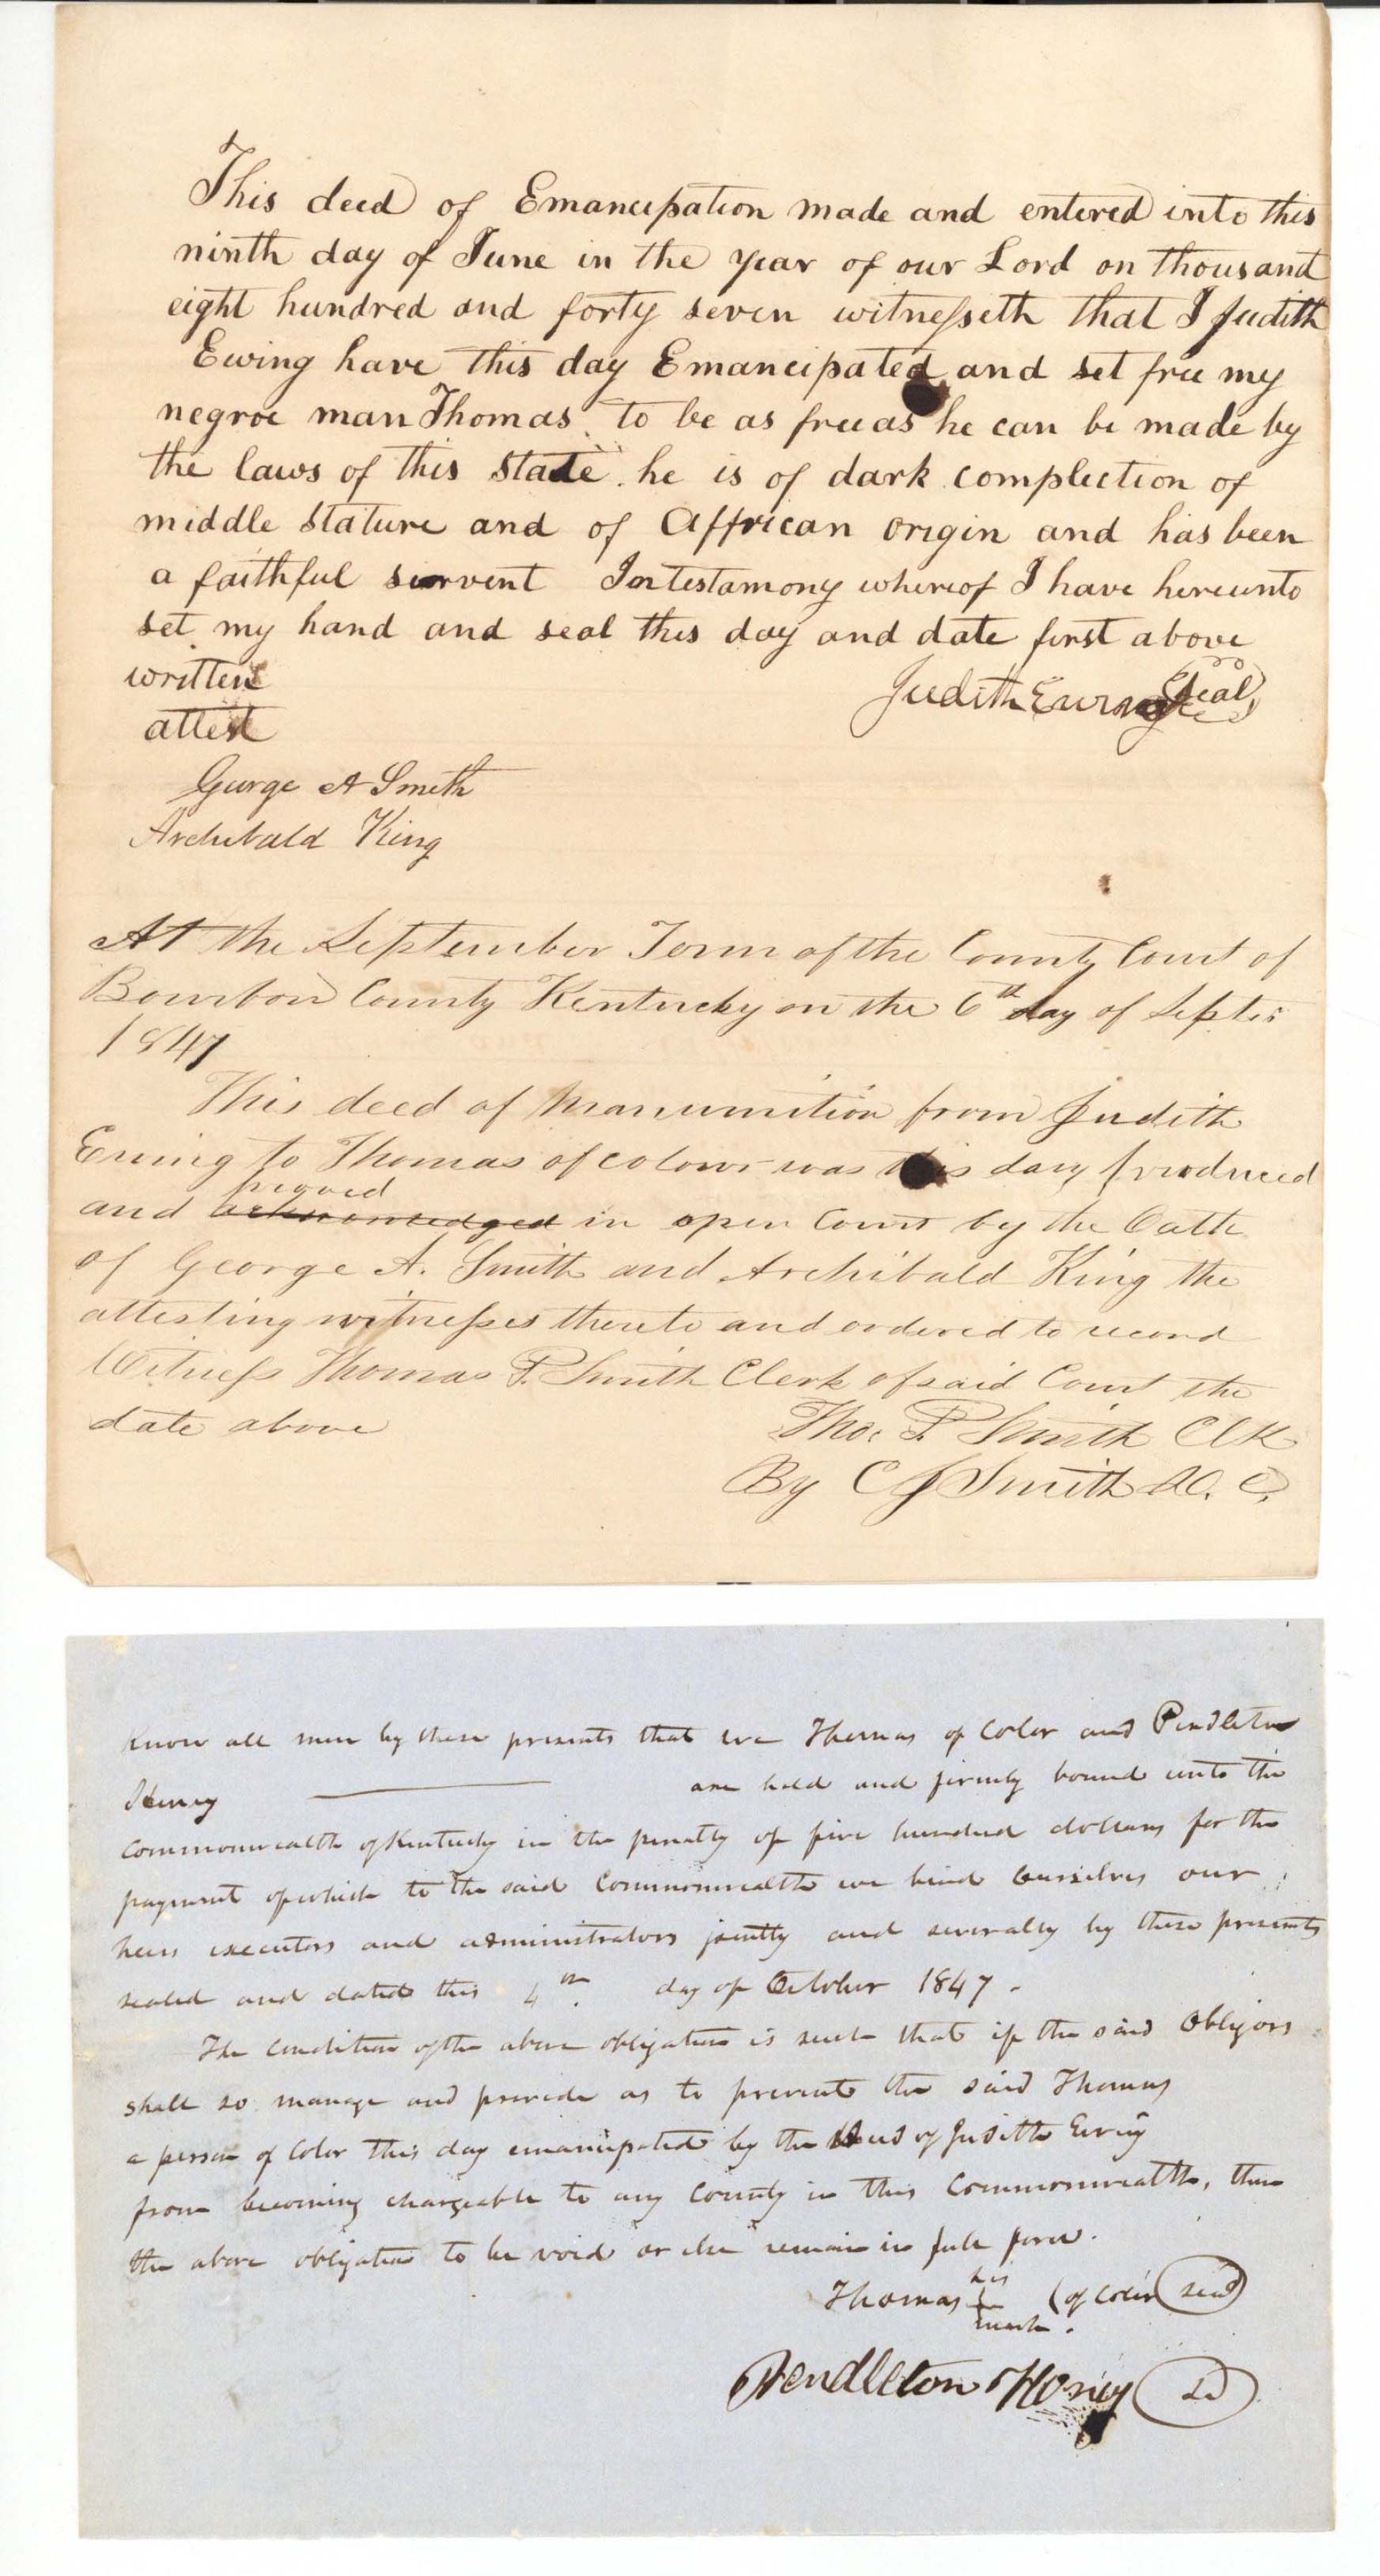 This deed of Emancipation made and entered into this
ninth day of June in the year of our Lord on thousand
eight hundred and forty seven witnesseth that I Judith
Ewing have this day Emancipated and set free my
negroe man Thomas to be as free as he can be made by
the laws of this state. he is of dark complection of
middle stature and of Affrican origin and has been
a faithful survent In testamony whereof I have hereunto
set my hand and seal this day and date first above
written
Judith Ewing Seal
attest
George A Smith
Archibald King
At the September Term of the County Court of
Bourbon County Kentucky on the 6th day of Septr
1847
This deed of Manumition from Judith
Ewing to Thomas of colour was this day produced
proved
and acknowledged in open Court by the Oath
of George A. Smith and Archibald King the
attesting witnesses thereto and ordered to record
Witness Thomas P. Smith Clerk of said Court the
date above
Tho. P Smith Clk
By C J Smith D. C.
Know all men by these presents that we Thomas of Color and Pendleton
Henry are held and firmly bound unto the
commonwealth of Kentucky in the penalty of five hundred dollars for the
payment of which to the said Commonwealth we bind ourselves our
heirs executors and administrators jointly and severally by these presents
sealed and dated this 4th day of October 1847.
The condition of the above obligation is such that if the said Obligors
shall so manage and provide as to prevent the said Thomas
a person of Color this day emancipated by the Deed of Judith Ewing
from becoming chargeable to any County in this Commonwealth, then
the above obligation to be void or else remain in full force.
his
Thomas + (of Color seal
mark.
Pendleton Honey